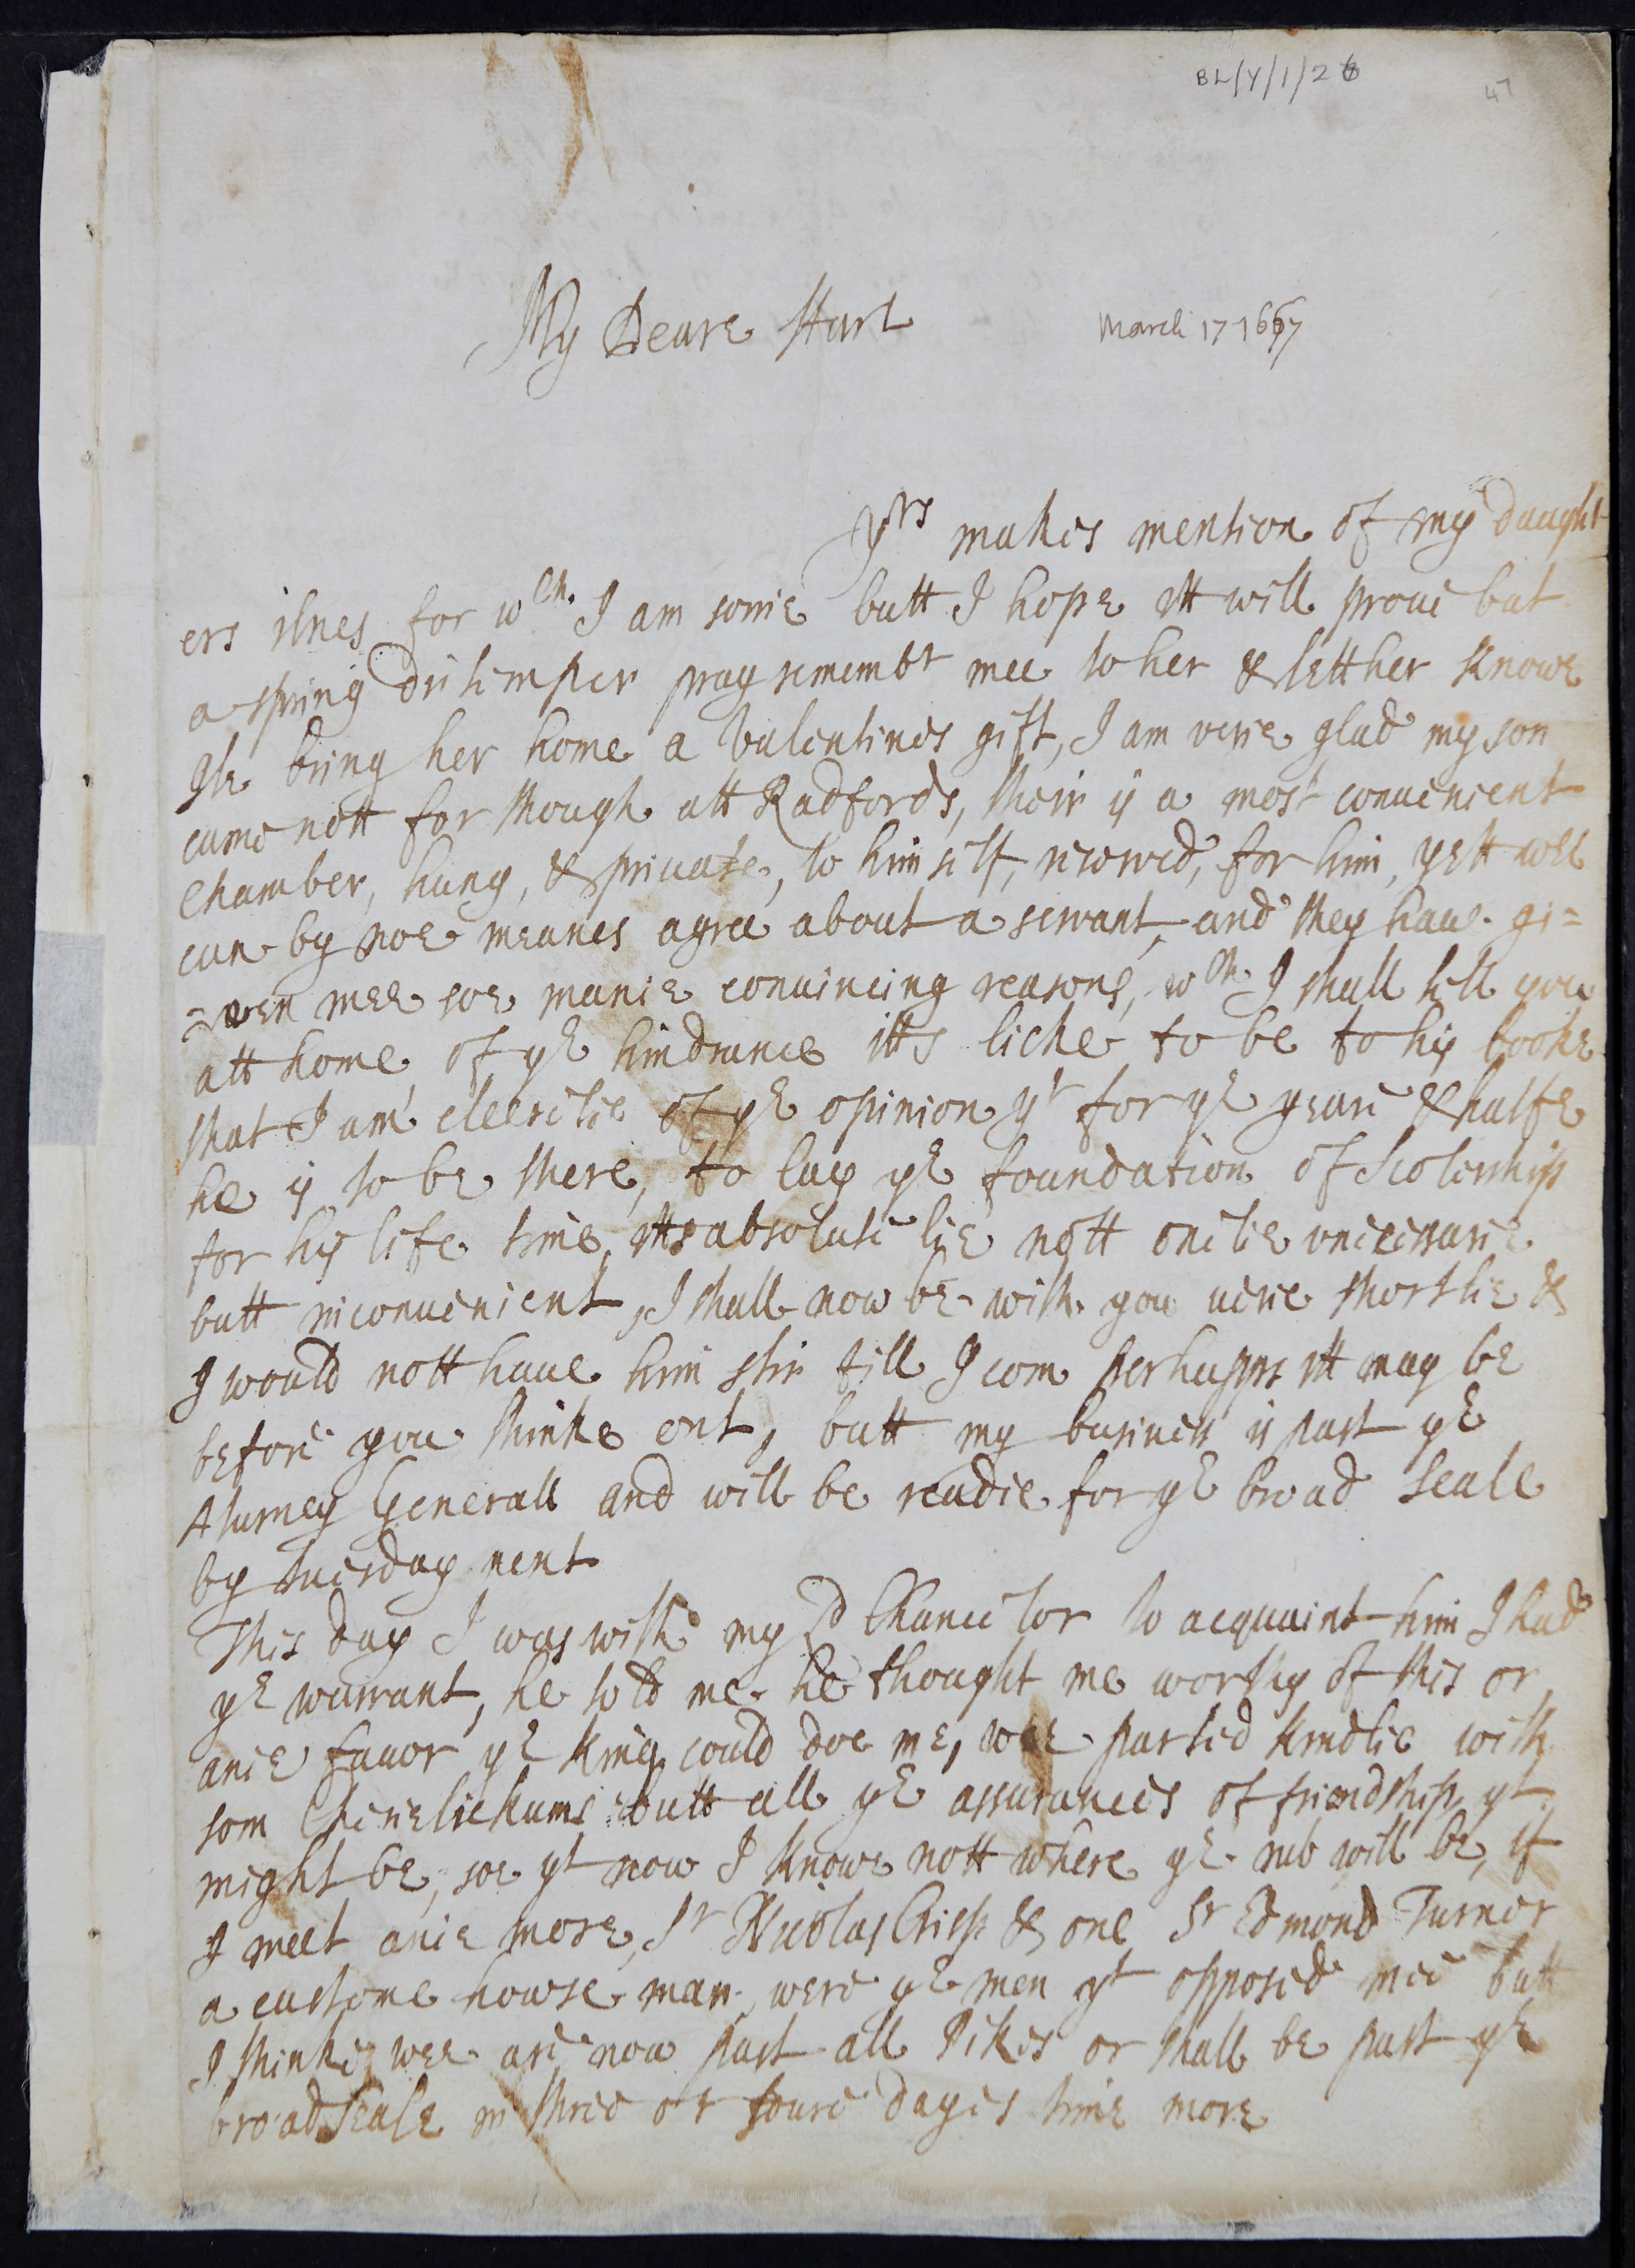 BL/Y/1/26
47
My Deare Hart
March 17 1667
yrs makes mention of my daught
ers ilnes for wch I am sorrie butt I hope itt will prove but
a spring distemper pray remembr mee to her & lett her knowe
Ile bring her home a valentines gift, I am verie glad my son
came nott for though att Radfords, their is a most convenient
Chamber, hung, & private, to him self, reserved, for him, yett wee
can by noe meanes agree about a servant, and they have gi=
=ven mee soe manie convincing reasons, wch I shall tell you
att home of ye hindrance itts licke to be to his booke
that I am cleerelie of ye opinion yt for ye yeare & halfe
he is to be there, to lay ye foundation of Scolership
for his life time, itts absolutelie nott onelie unecissarie
butt inconvenient, I shall now be with you verie shortlie &
I would nott have him stir till I com perhapps itt may be
before you thinke ont, butt my business is past ye
Aturney Generall and will be readie for ye broad Seale
by tuesday next
This day I was with my Ld Chancelor to acquaint him I had
ye warrant, he told me he thought me worthy of this or
anie favor ye King could doe me, wee parted kindlie with
som butt all ye assurances of friendship yt
might be, soe yt now I knowe nott where ye rub will be, if
I meet anie more, Sr Nicolas Crisp & one Sr Edmond Turner
a custome howse man, were ye men yt opposed mee butt
I thinke wee are now past all Pikes or shall be past ye
broad Seale in three or foure dayes time more